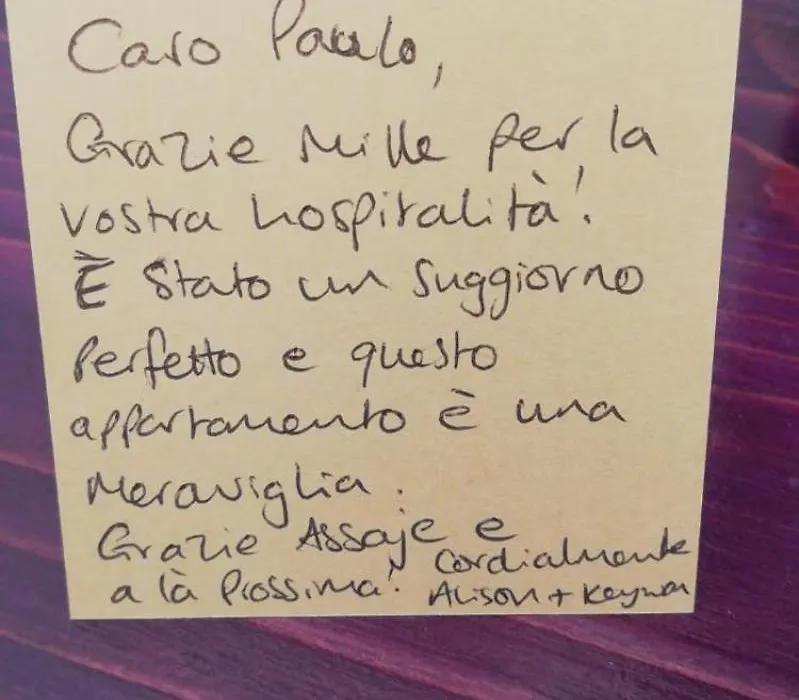 Caro Paulo,
Grazie Mille per la
vostra hospitalità!
È Stato un Suggiorno
Perfetto e questo
appartamento è una
Meraviglia.
Grazie Assaje e
a là Prossima!
Cordialmente
Alison +